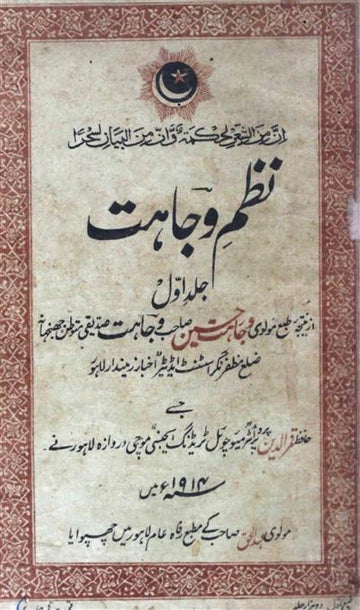 ان من الشعر لحکمۃ وان من البیان لسحرا
نظمِ وجاہت
جلد اوّل
از نتیجہ طبع مولوی وجاہت حسین صاحب وجاہت صدیقی متوطن جھنجھانہ
ضلع مظفر نگر اسسٹنٹ اڈیٹر اخبار زمیندار لاہور
جسے
حافظ قمر الدین پروپرائٹر میوچوئل ٹریڈنگ ایجنسی موچی دروازہ لاہور نے
سنہ ۱۹۱۴ء میں
مولوی عبدالحق صاحب کے مطبع رفاہ عام لاہور میں چھپوایا